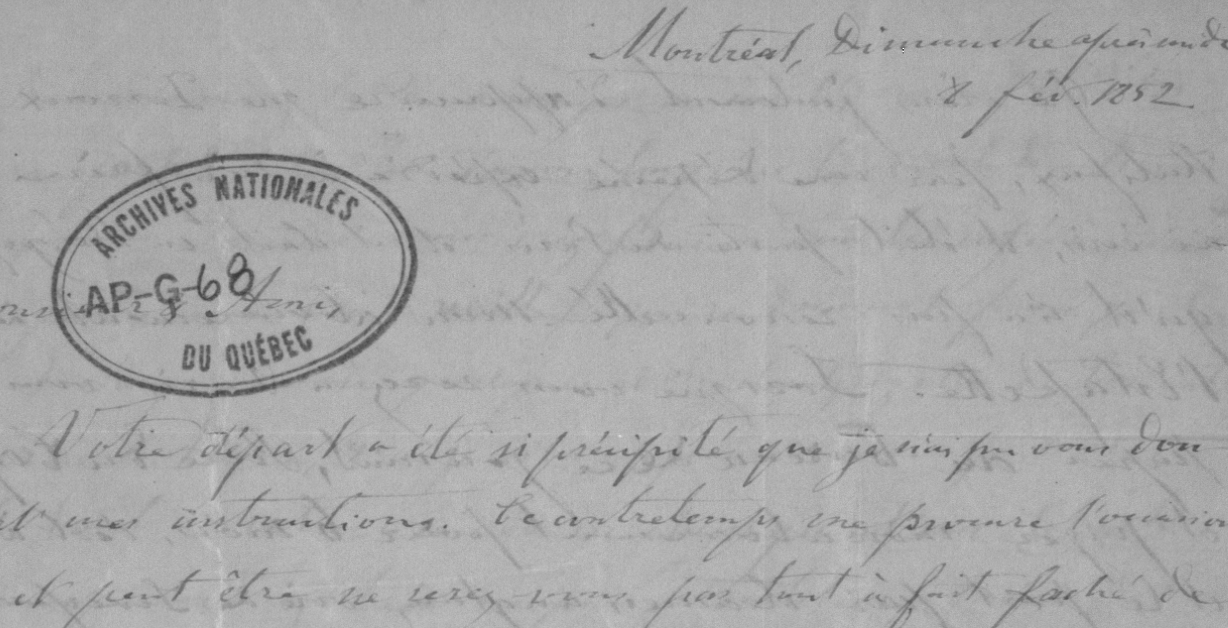 Montréal, Dimanche après midi
8 fév. 1852
ARCHIVES NATIONALES
AP-G-68
DU QUÉBEC
& Ami,
Votre départ a été si précipité que je n'ai pu vous don
mes instructions. Ce contretemps me procure l'occasion
et peut être ne serez vous pas tout à fait faché de